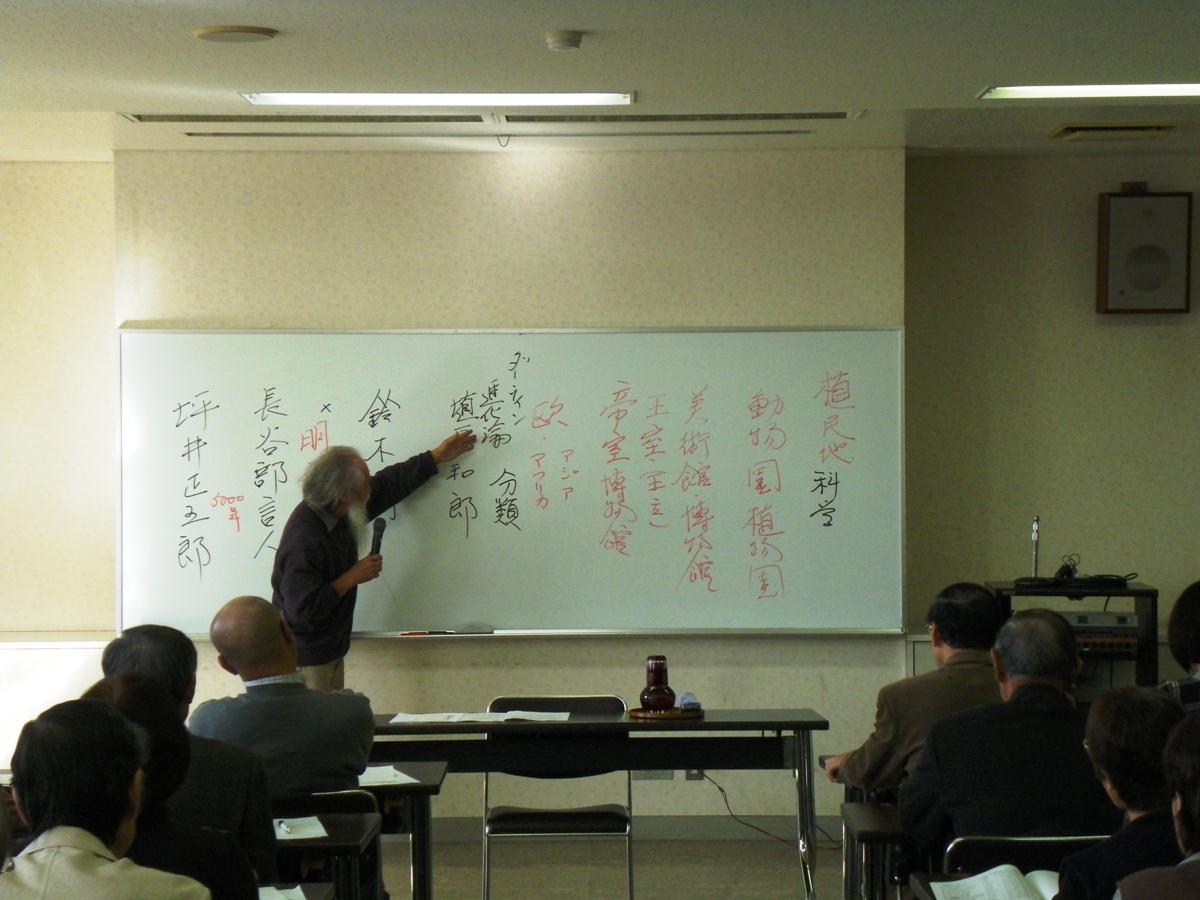 植民地科学
動物園植物園
美術館・博物館
王室(王立)
帝室博物館
欧・アフリカ
アジア
ダーウィン
進化論 分類
埴 和郎
鈴木
×
明
長谷部言人
5000年
坪井正五郎